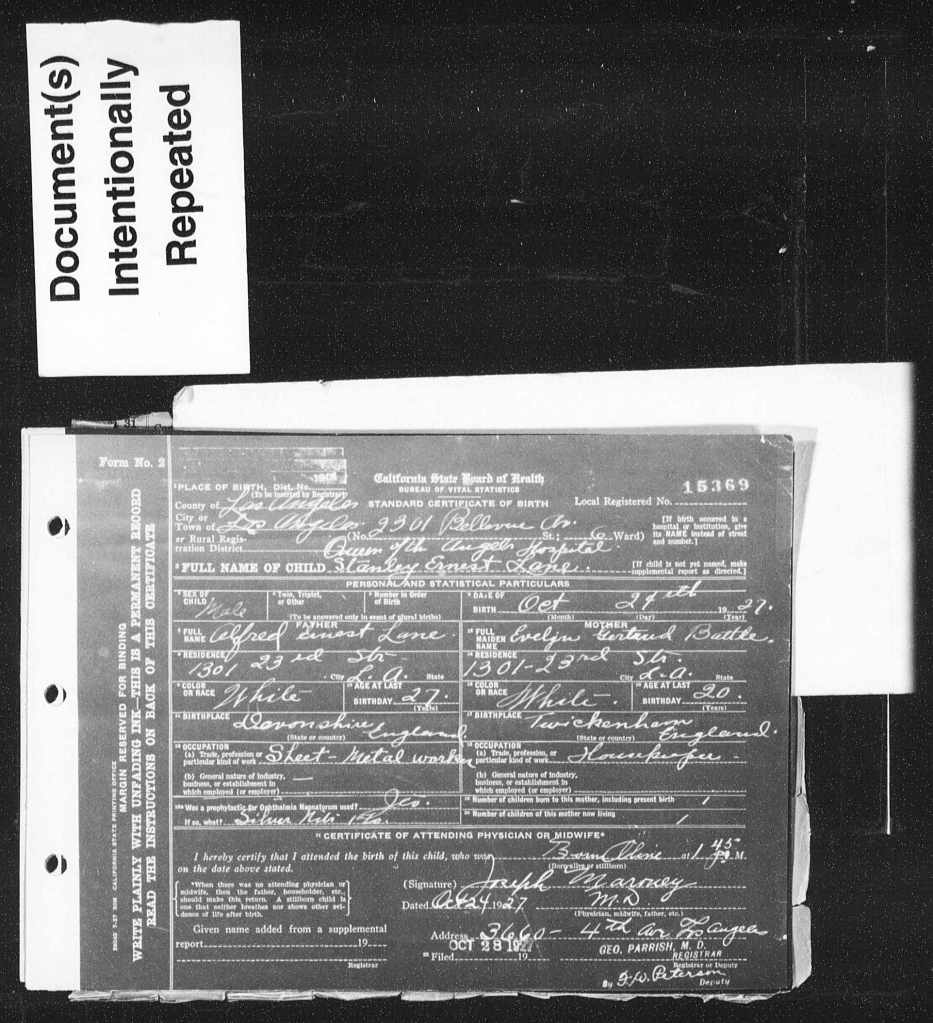 Document(s)
Intentionally
Repeated
31
Form No. 2
MARGIN RESERVED FOR BINDING
WRITE PLAINLY WITH UNFADING INK—THIS IS A PERMANENT RECORD
READ THE INSTRUCTIONS ON BACK OF THIS CERTIFICATE
CALIFORNIA STATE PRINTING OFFICE
PLACE OF BIRTH, Dist. No.
(To be inserted by Registrar)
California State Board of Health
BUREAU OF VITAL STATISTICS
STANDARD CERTIFICATE OF BIRTH
Local Registered No. 15369
County of Los Angeles
City or
Town of Los Angeles (No. 2301 Bellevue Av. St.; 6 Ward)
or Rural Regis-
tration District Queen of th Angels Hospital.
[If birth occurred in a
hospital or institution, give
its NAME instead of street
and number.]
FULL NAME OF CHILD Stanley Ernest Lane.
[If child is not yet named, make
supplemental report as directed.]
PERSONAL AND STATISTICAL PARTICULARS
SEX OF
CHILD Male
Twin, Triplet,
or Other
Number in Order
of Birth
(To be answered only in event of plural births)
DATE OF
BIRTH Oct 24th 1927.
(Month) (Day) (Year)
FATHER
FULL
NAME Alfred Ernest Lane.
MOTHER
FULL
MAIDEN
NAME Evelyn Gertrud Battle.
RESIDENCE
1301 23rd Str.
City L.A. State
RESIDENCE
1301-23rd Str.
City L.A. State
COLOR
OR RACE White
AGE AT LAST
BIRTHDAY 27.
(Years)
COLOR
OR RACE White.
AGE AT LAST
BIRTHDAY 20.
(Years)
BIRTHPLACE Devonshire England
(State or country)
BIRTHPLACE Twickenham England.
(State or country)
OCCUPATION
(a) Trade, profession or
particular kind of work Sheet-Metal worker
(b) General nature of industry,
business, or establishment in
which employed (or employer)
OCCUPATION
(a) Trade, profession, or
particular kind of work Housekeeper
(b) General nature of industry,
business, or establishment in
which employed (or employer)
Was a prophylactic for Ophthalmia Neonatorum used? Yes.
If so, what? Silver Nit. 1%.
Number of children born to this mother, including present birth 1
Number of children of this mother now living 1
CERTIFICATE OF ATTENDING PHYSICIAN OR MIDWIFE*
I hereby certify that I attended the birth of this child, who was Born Alive at 1 45 P. M.
on the date above stated. (Born alive or stillborn)
*When there was no attending physician or
midwife, then the father, householder, etc.,
should make this return. A stillborn child is
one that neither breathes nor shows other evi-
dence of life after birth.
(Signature) Joseph Maroney
M.D
Dated Oct 24 1927
(Physician, midwife, father, etc.)
Given name added from a supplemental
report 19
Registrar
Address 3660- 4th Av. Los Angeles
OCT 28 1927
Filed 19
GEO. PARRISH, M. D.
REGISTRAR
Registrar or Deputy
By F.W. Peterson
Deputy